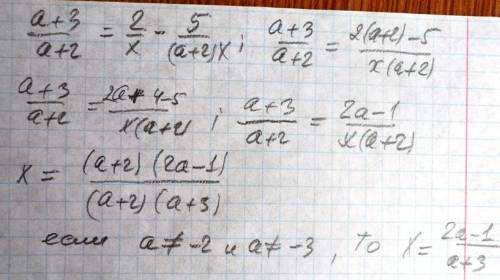 (a+3)/(a+2) = 2/x - 5/((a+2)x); (a+3)/(a+2) = (2(a+2)-5)/(x(a+2))
(a+3)/(a+2) = (2a+4-5)/(x(a+2)); (a+3)/(a+2) = (2a-1)/(x(a+2))
x = ((a+2)(2a-1))/((a+2)(a+3))
если a≠-2 и a≠-3, то x = (2a-1)/(a+3)